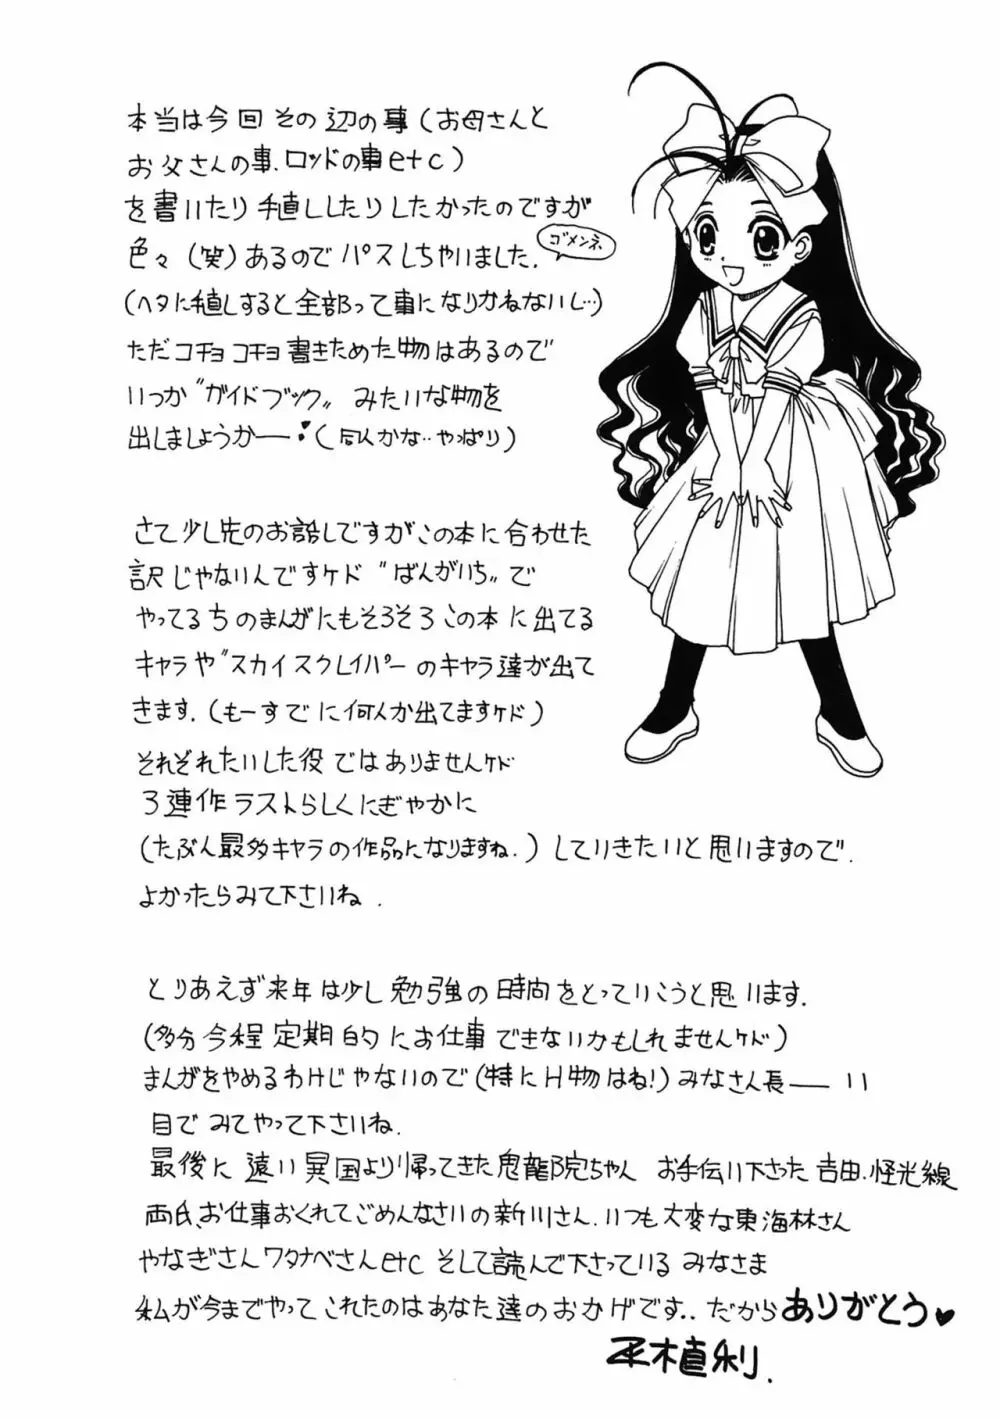 本当は今回その辺の事(お母さんと
お父さんの事.ロッドの事etc)
を書いたり描したりしたかったのですが
色々(笑)あるのでパスしちゃいました.
ゴメンネ
(ヘタに描しすると全部って事になりかねないし…)
ただコチョコチョ書きためた物はあるので
いつか〝ガイドブック〟みたいな物を
出しましようかー♥(同人かな‥やっぱり)
さて少し先のお話しですがこの本に合わせた
訳じゃないんですケド〝ばんがいち〟で
やってるうちのまんがにもそろそろこの本に出てる
キャラや〝スカイスクレイパーのキャラ達が出て
きます.(もーすでに何人か出てますケド)
それぞれたいした役ではありませんケド
3連作ラストらしくにぎやかに
(たぶん最多キャラの作品になりますね.)していきたいと思いますので.
よかったらみて下さいね.
とりあえず来年は少し勉強の時間をとっていこうと思います.
(多分今程定期的にお仕事できないかもしれませんケド)
まんがをやめるわけじゃないので(特にH物はね!)みなさん長—い
目でみてやって下さいね.
最後に遠い異国より帰ってきた鬼龍院ちゃん お手伝い下さった吉田.怪光線
両氏、お仕事おくれてごめんなさいの新川さん.いつも大変な東海林さん
やなぎさんワタナベさんetc そして読んで下さっているみなさま
私が今までやってこれたのはあなた達のおかげです.. だからありがとう♥
平木直利.